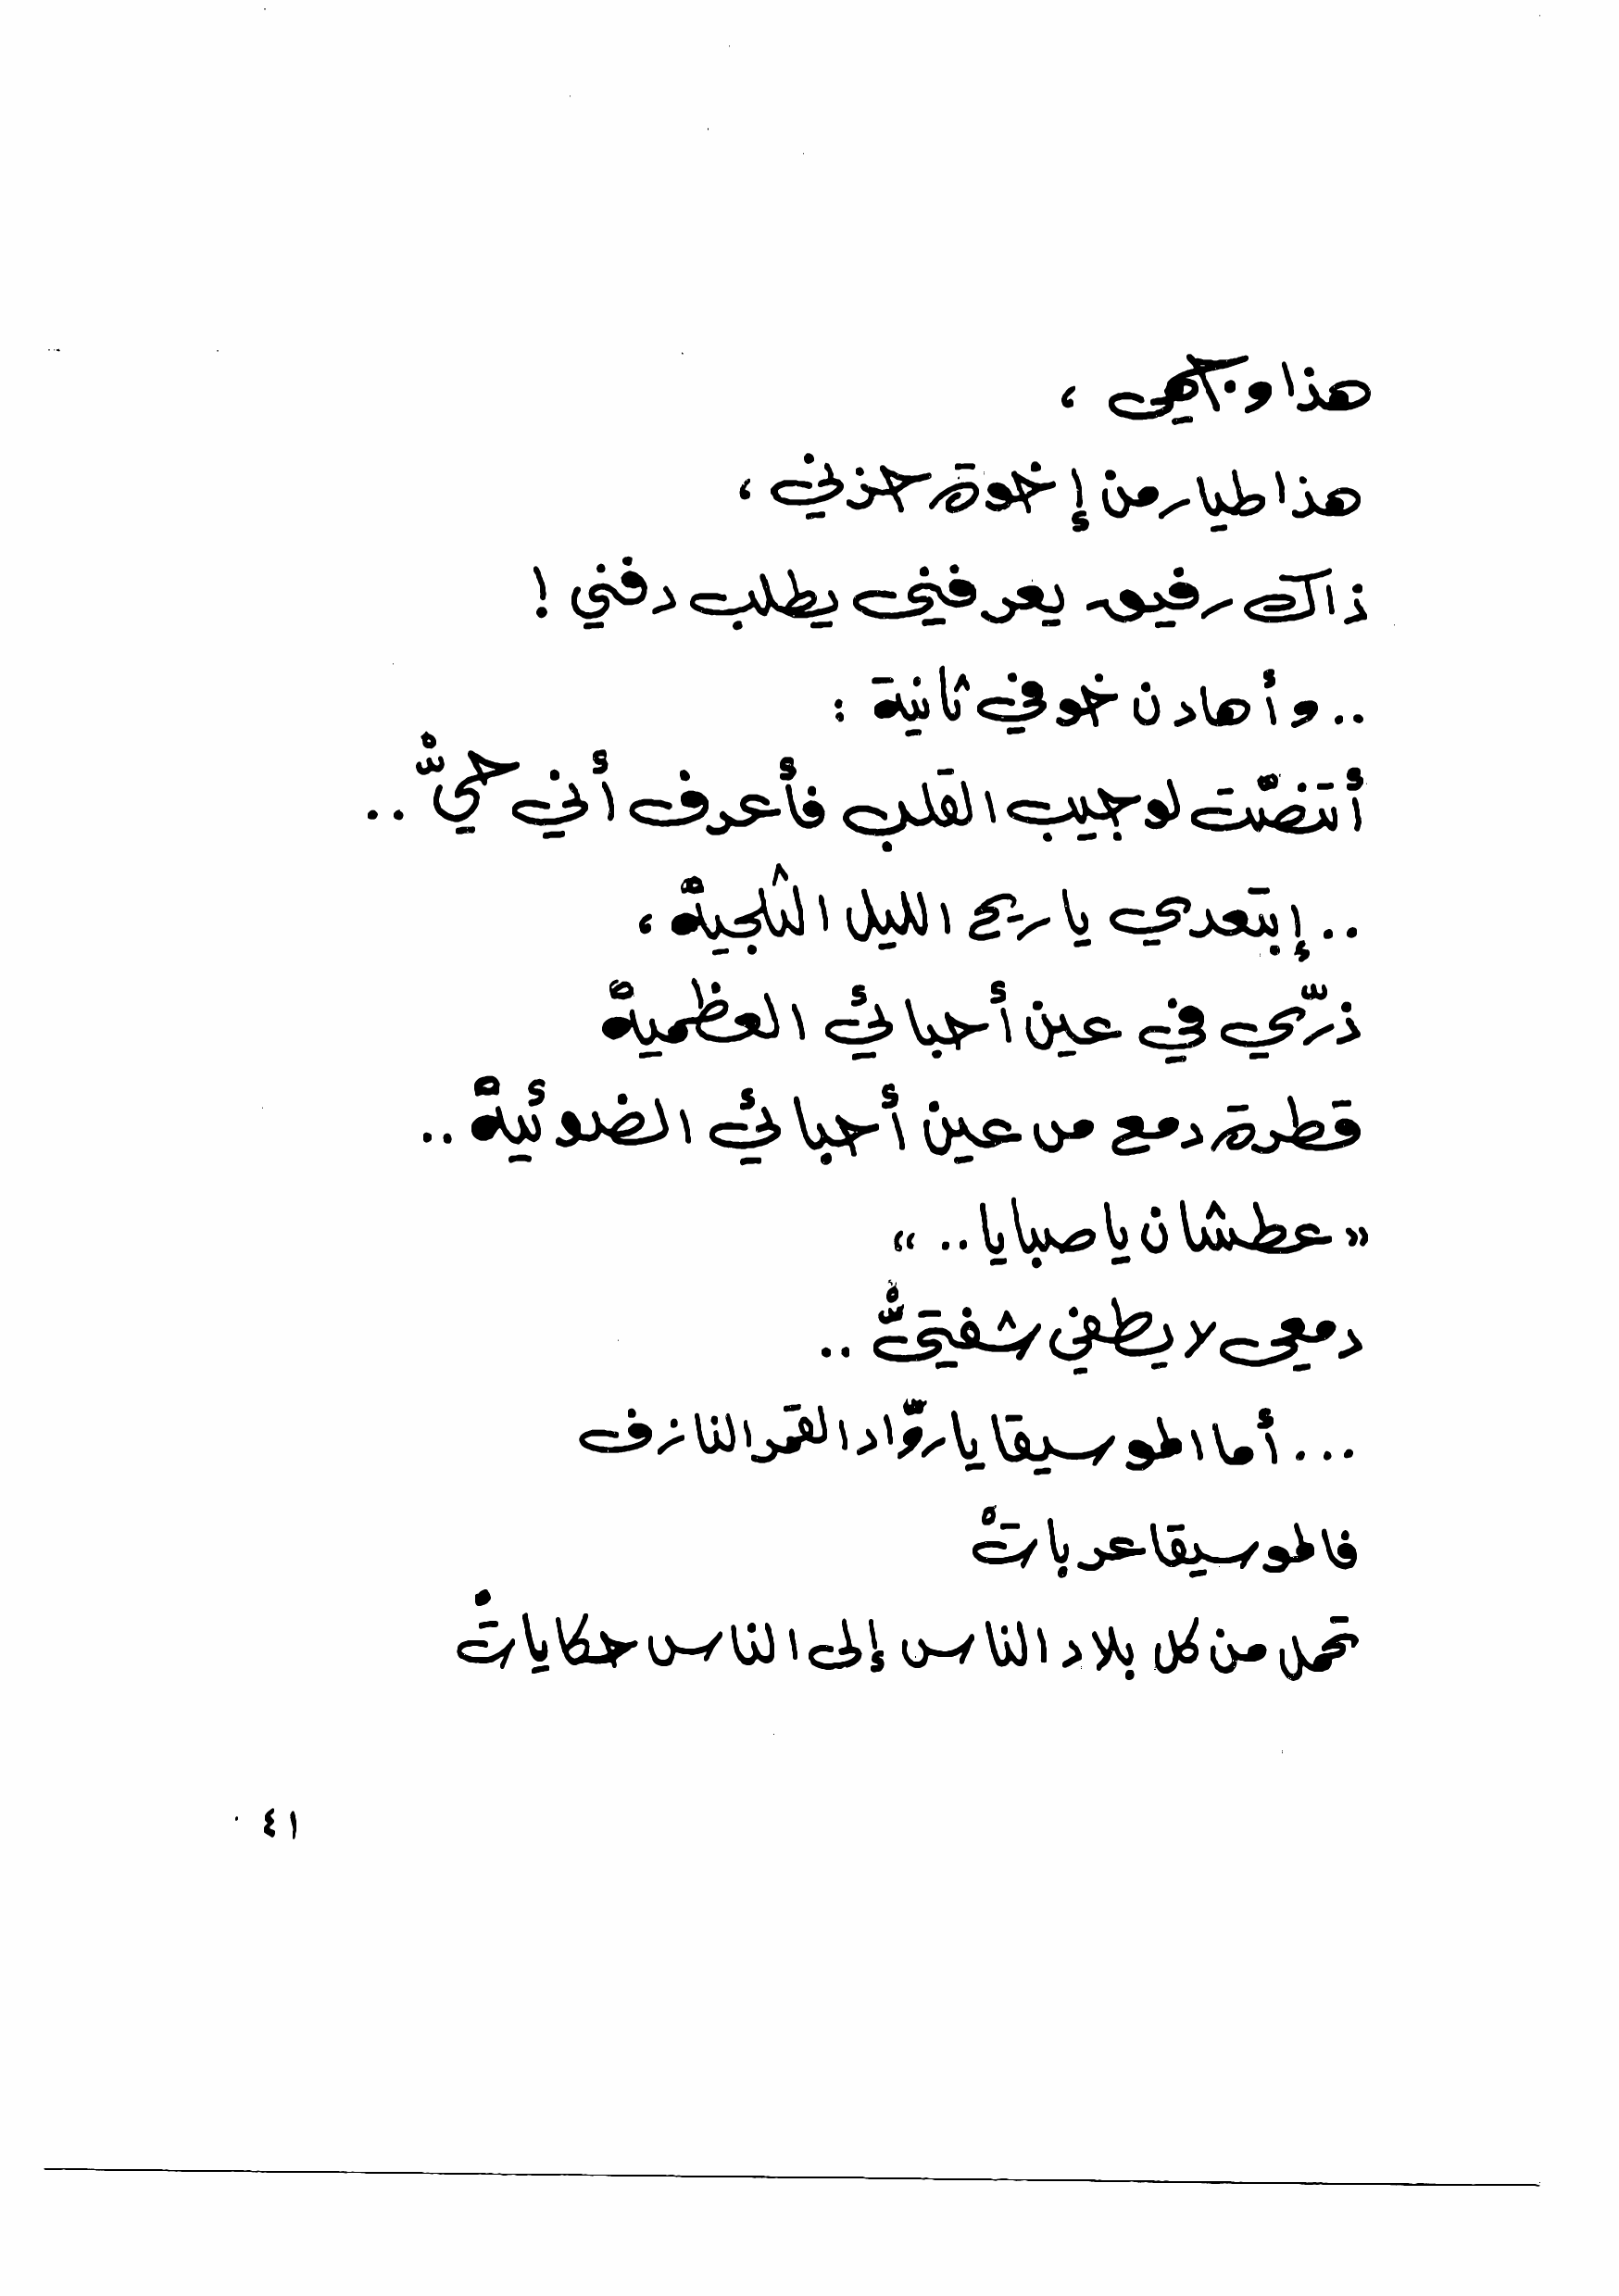 هذا وجهي ،
هذا طيار من إخوة حزني ،
ذاك رفيق يعرفني يطلب دفني !
.. وأهادن خوفي ثانية :
أتنصّت لوجيب القلب فأعرف أني حيّْ ..
.. إبتعدي يا ريح الليل الثلجيةْ ،
ذرّي في عين أحبائي العظميةْ
قطرة دمع من عين أحبائي الضوئيةْ ..
« عطشان يا صبايا .. »
دمعي لا يطفي شفتيّْ ..
... أما الموسيقا يا روّاد القمر النازف
فالموسيقا عرباتْ
تحمل من كل بلاد الناس إلى الناس حكاياتْ
٤١